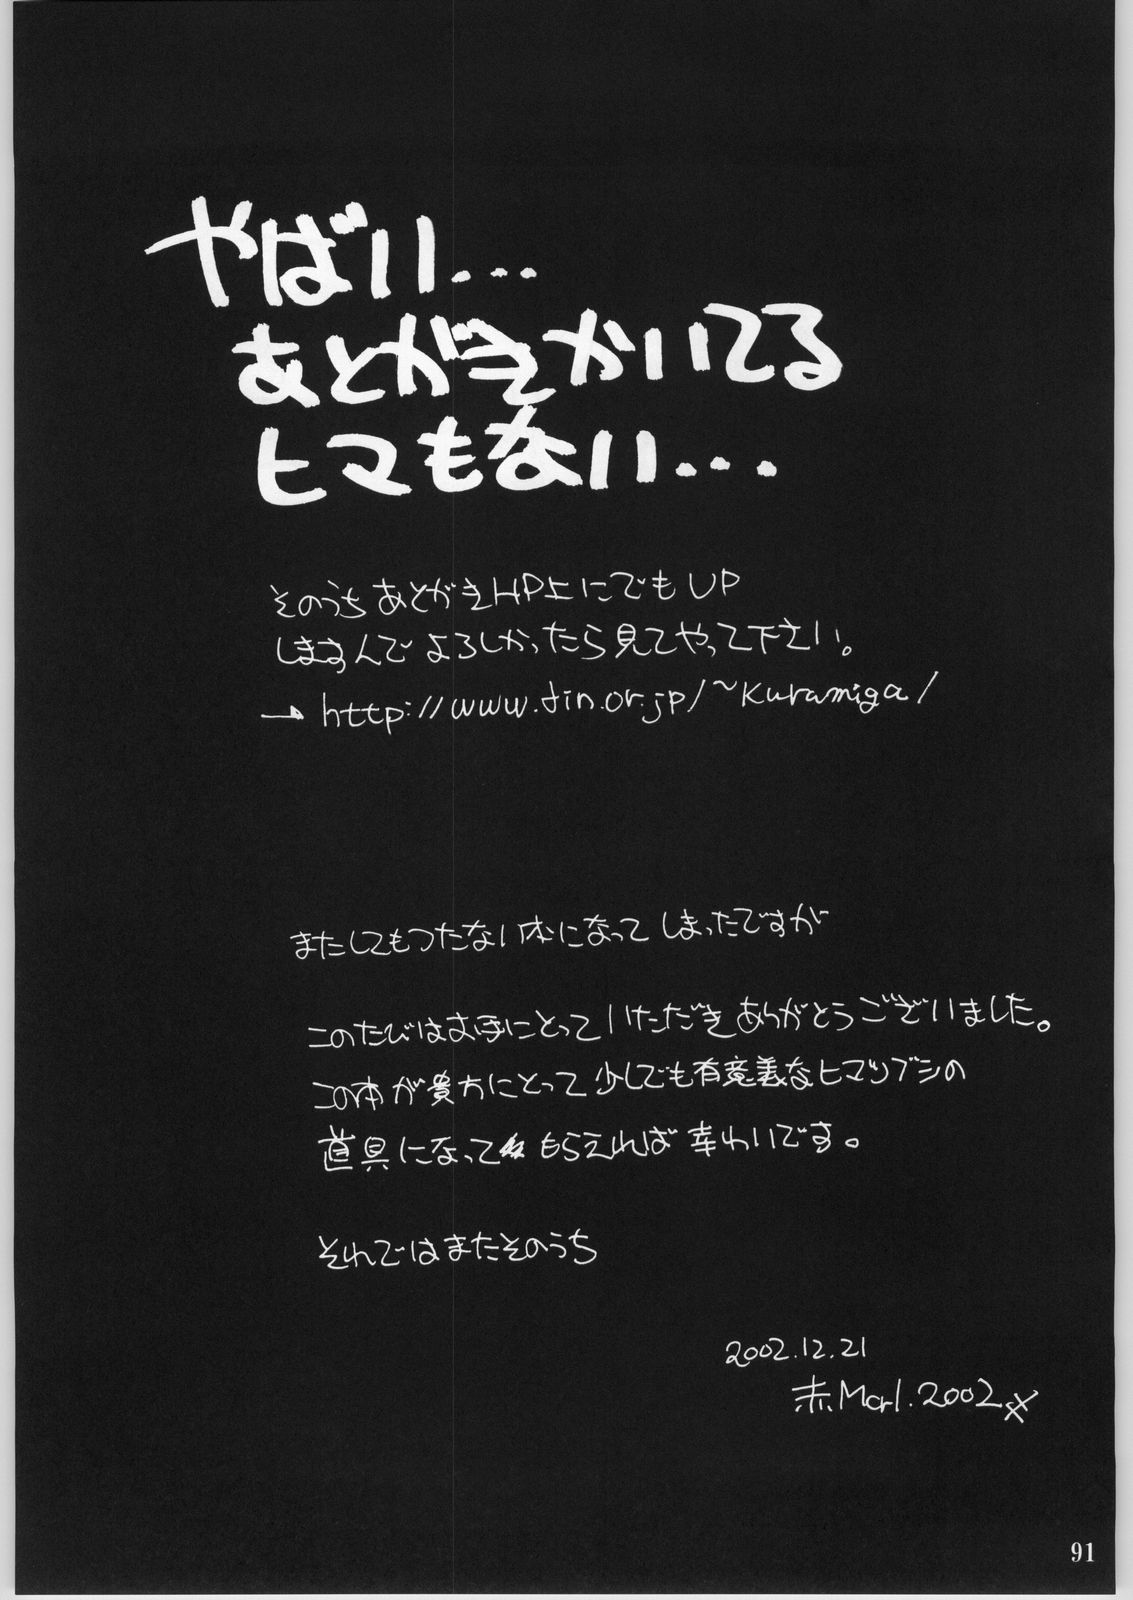 やばい...
あとがきかいてる
ヒマもない...
そのうちあとがきHP上にでもUP
しますんでよろしかったら見てやって下さい。
→http://www.tin.or.jp/~kuramiga/
またしてもつたない本になってしまったですが
このたびはお手にとっていただきありがとうございました。
この本が貴方にとって少しでも有意義なヒマツブシの
道具になってもらえれば幸わいです。
それではまたそのうち
2002.12.21
赤Marl.2002
91